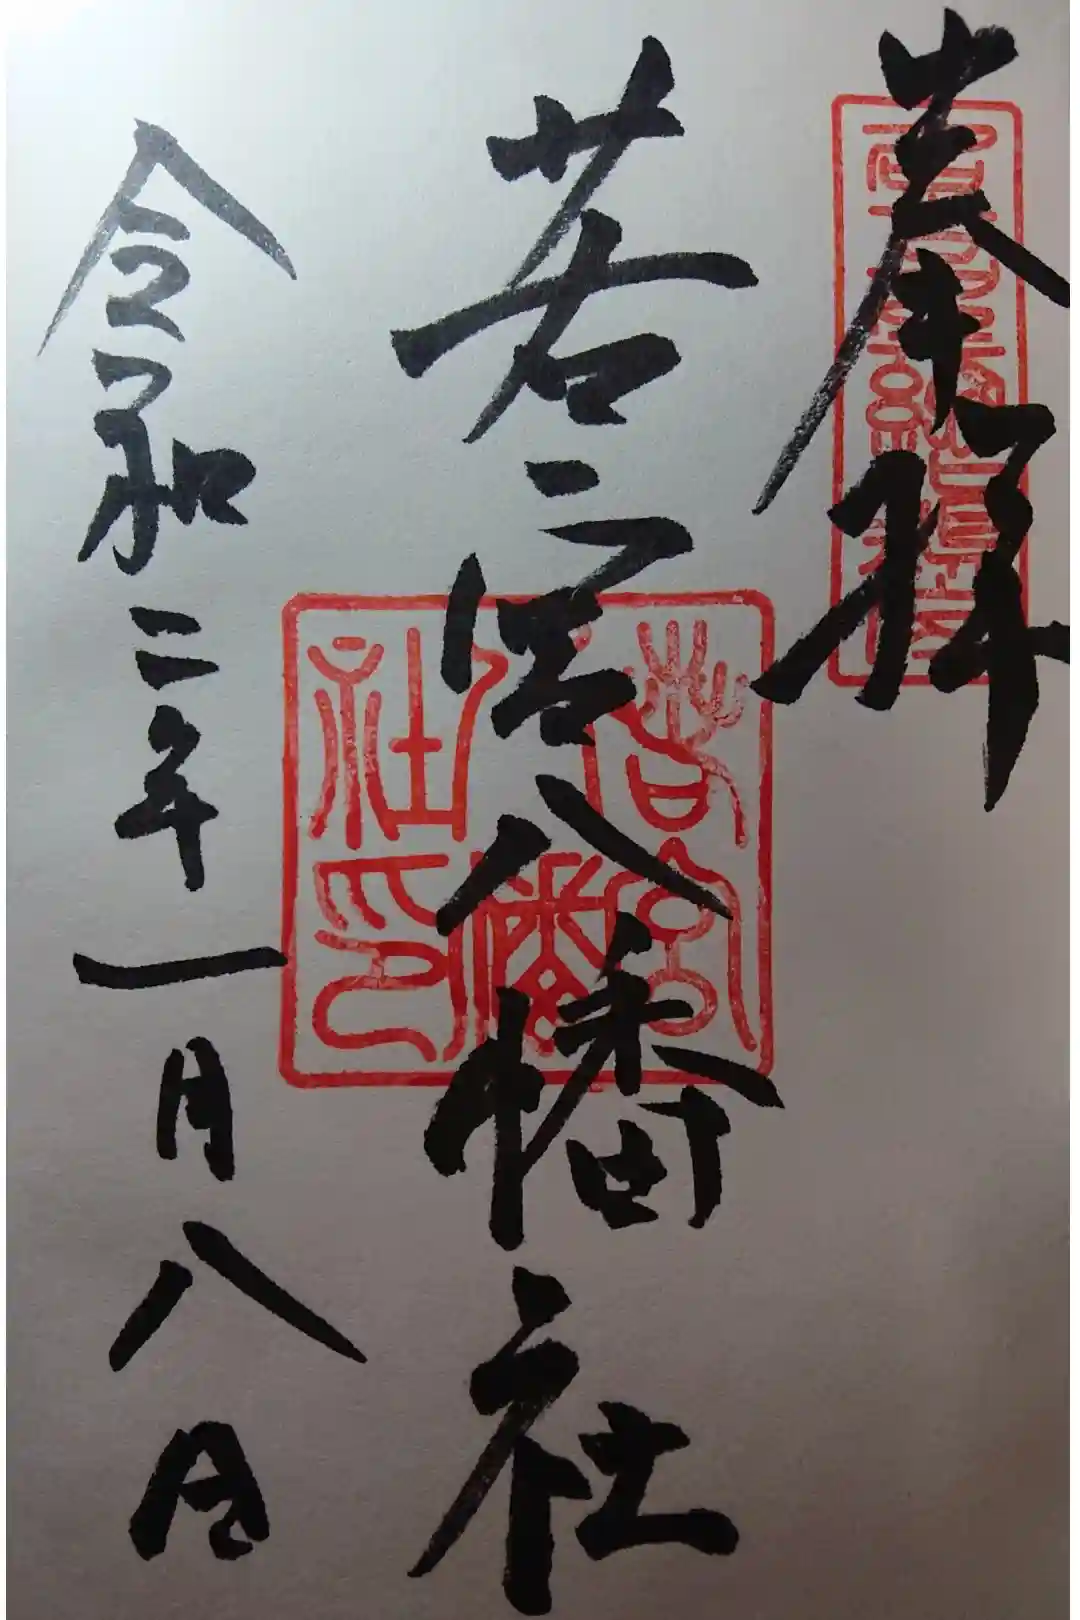 奉拝
若宮八幡社
令和二年一月八日
若宮八幡社印